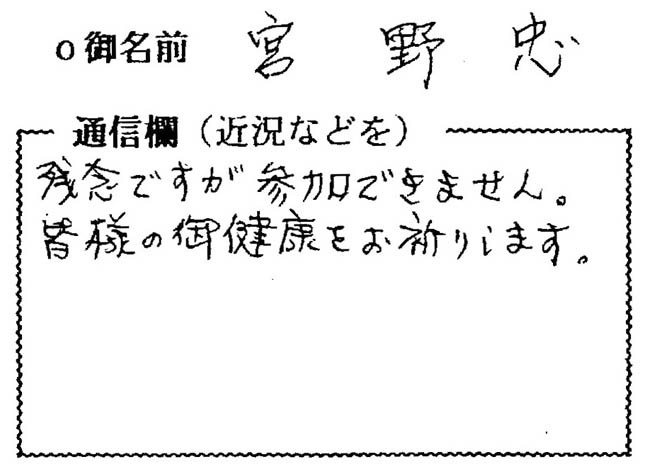 o御名前 宮野忠
通信欄（近況などを）
残念ですが参加できません。
皆様の御健康をお祈りします。